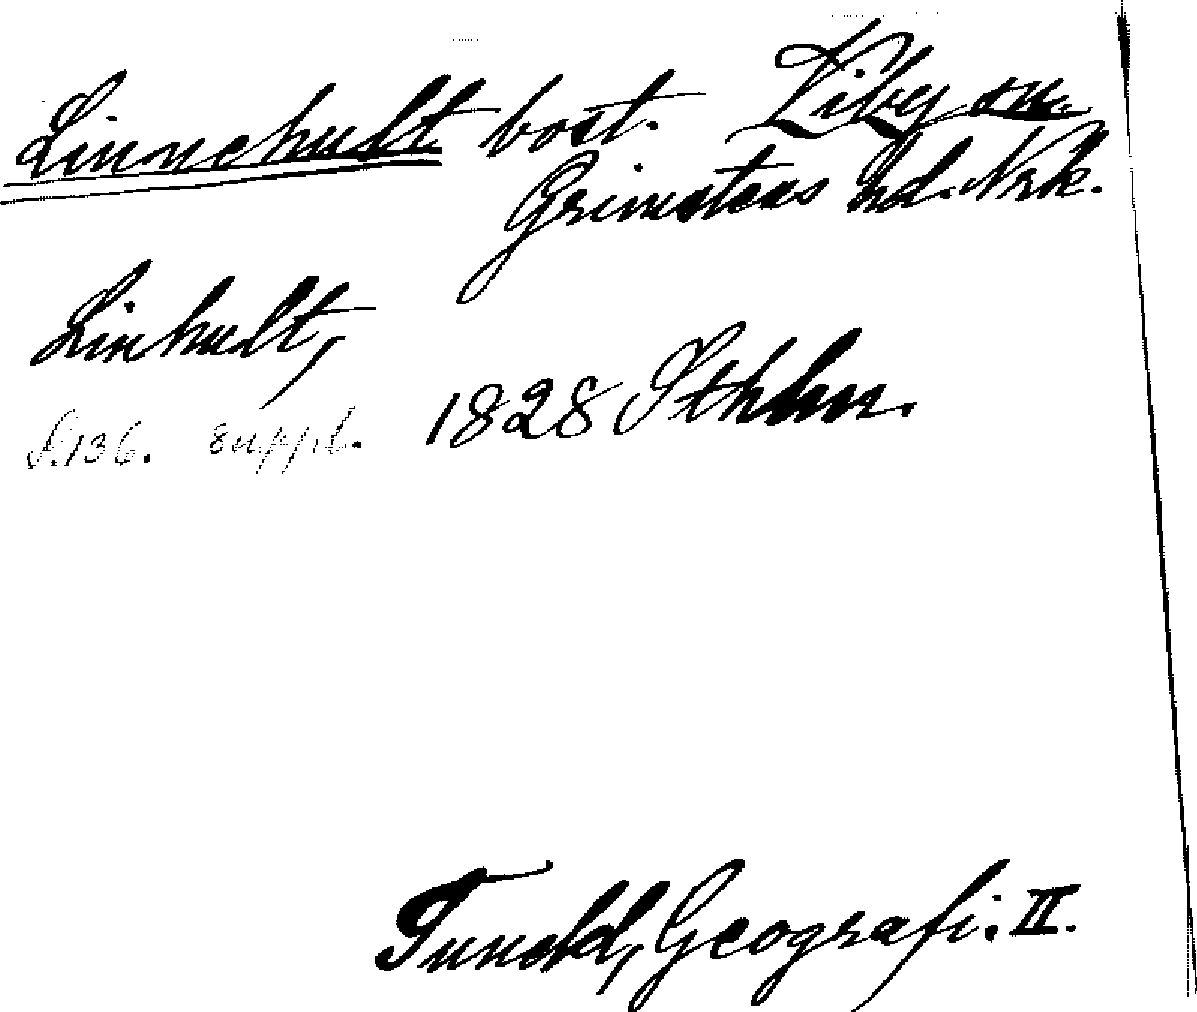 Linnehult bost. Viby sn.
Grimstens hd. Nrk.
Linhult,
S. 136. suppl. 1828 Sthlm.
Tuneld, Geografi. II.